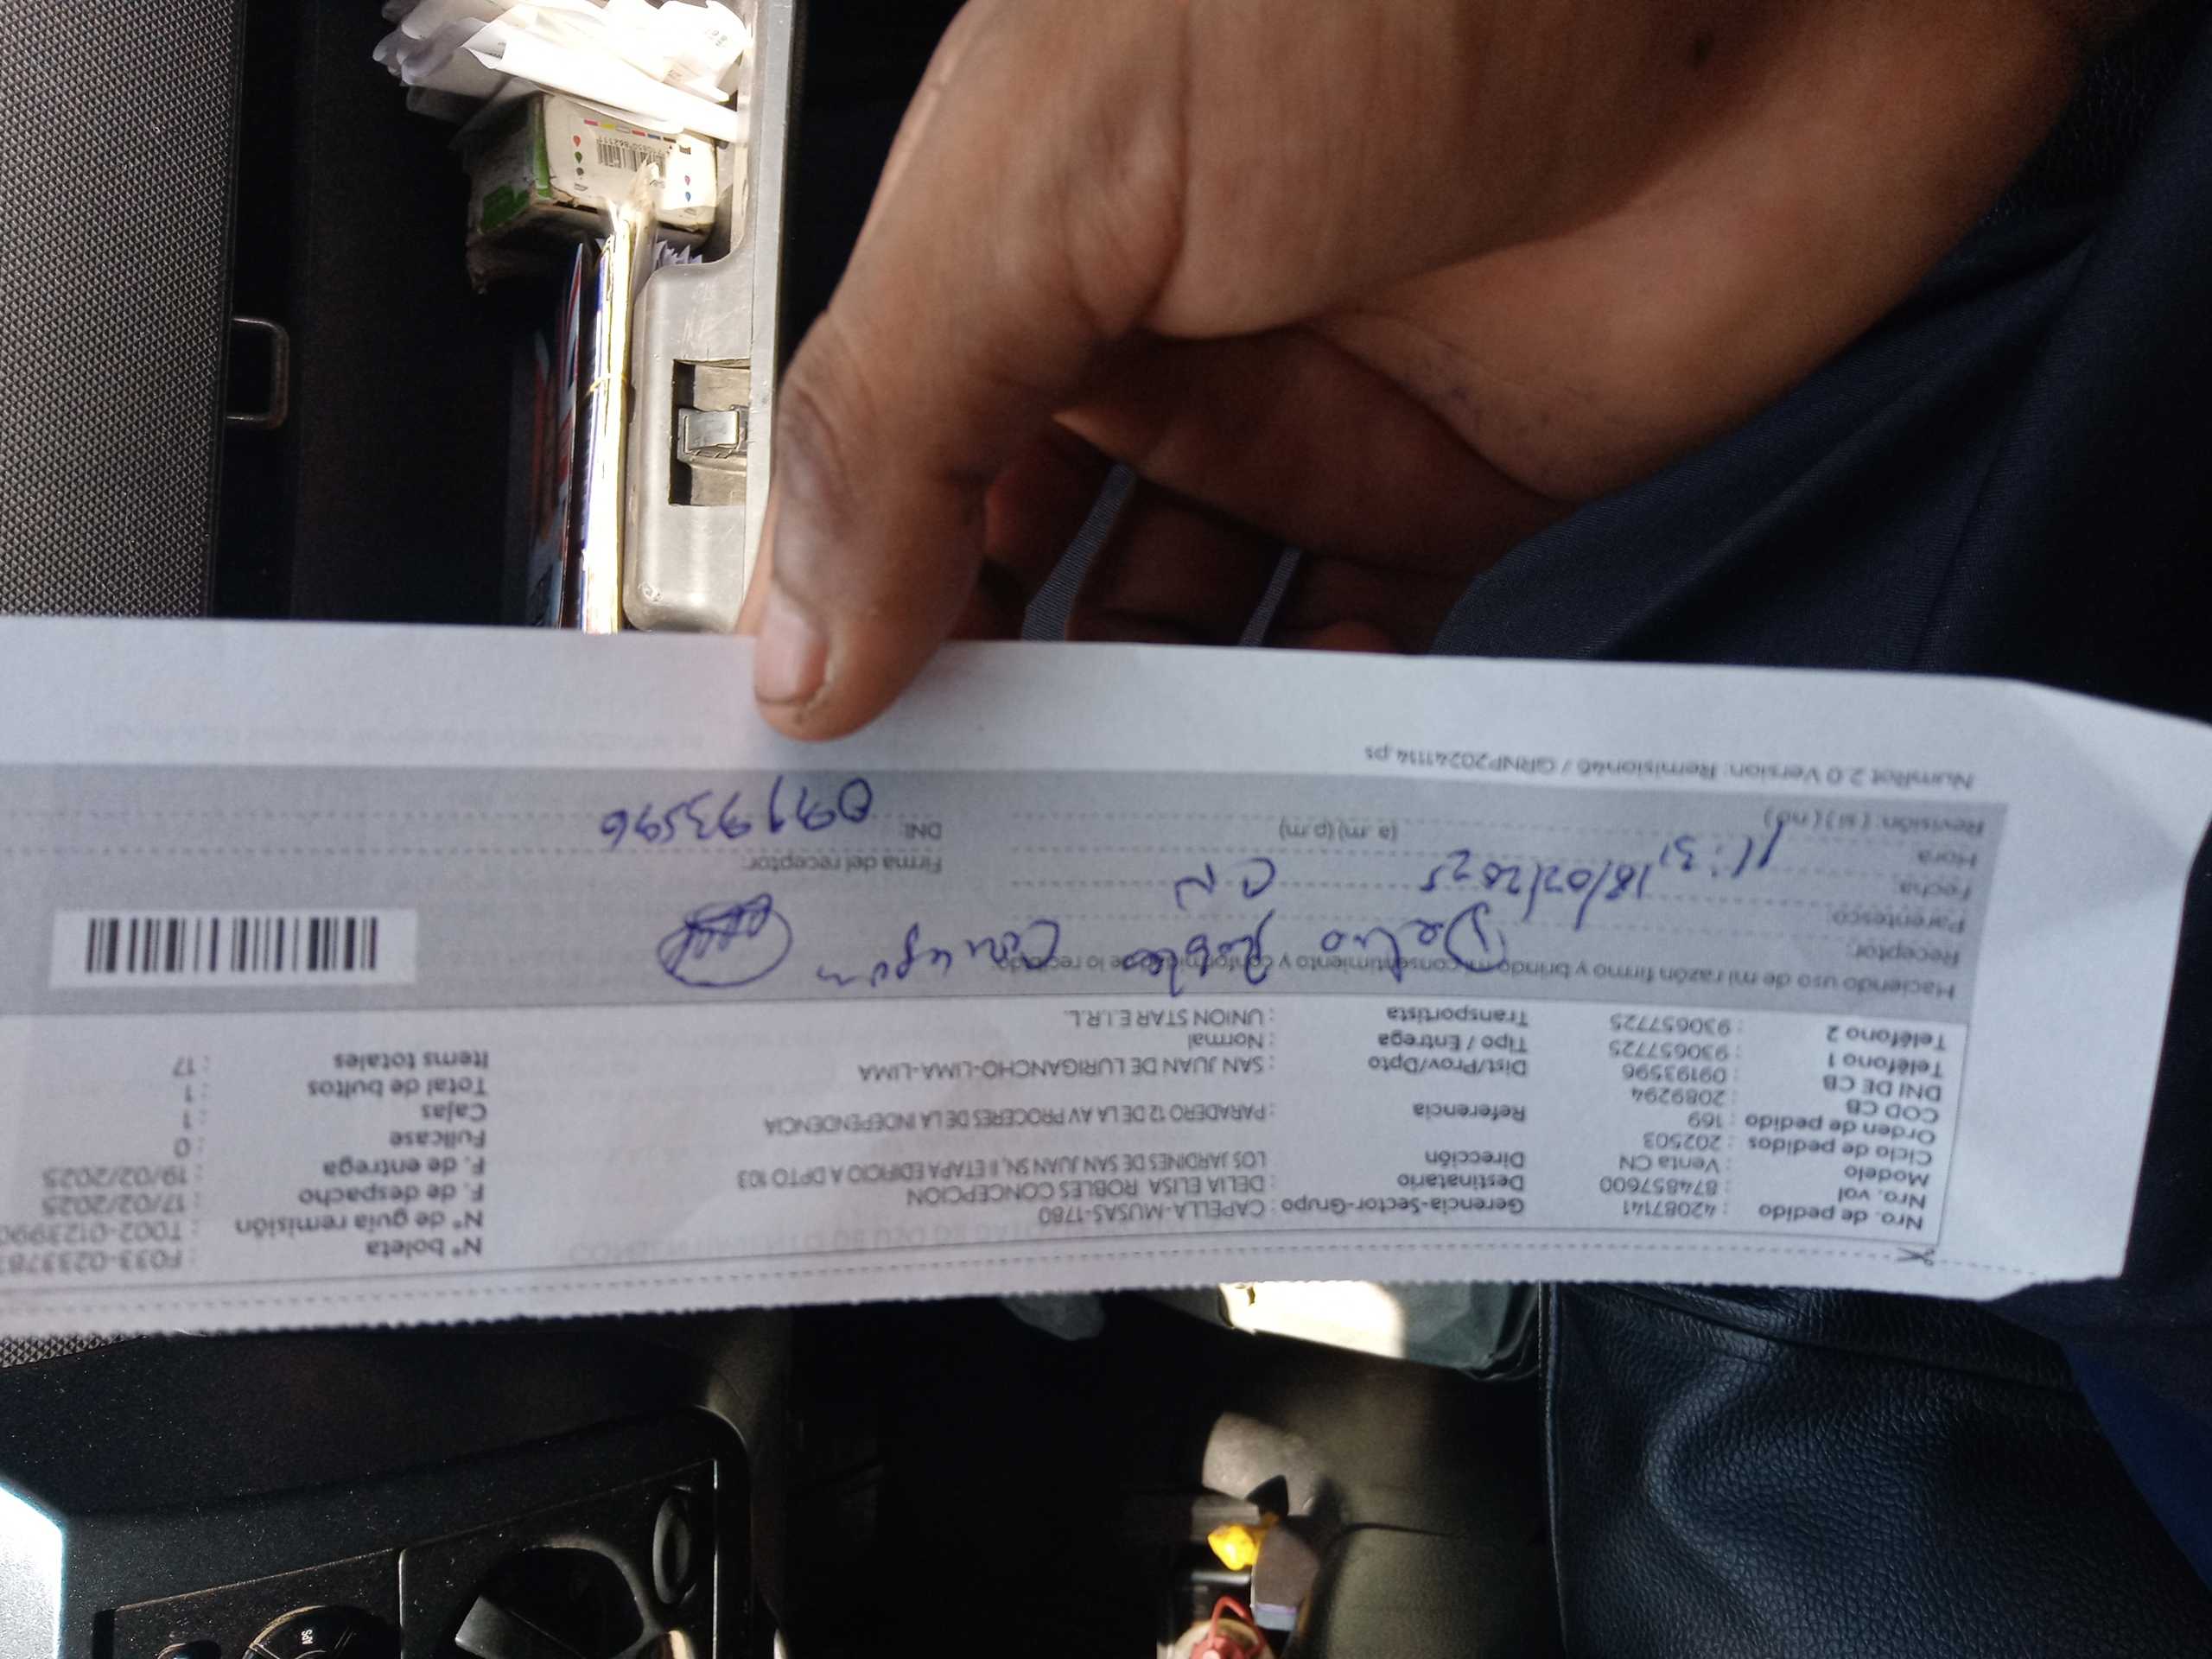 Nro. de pedido : 42087141
Nro. vol : 874857600
Modelo : Venta CN
Ciclo de pedidos : 202503
Orden de pedido : 169
COD CB : 2089294
DNI DE CB : 09193596
Teléfono 1 : 930657725
Teléfono 2 : 930657725
Gerencia-Sector-Grupo : CAPELLA-MUSAS-1780
Destinatario : DELIA ELISA ROBLES CONCEPCION
Dirección LOS JARDINES DE SAN JUAN SN, II ETAPA EDIFICIO A DPTO 103
Referencia : PARADERO 12 DE LA AV PROCERES DE LA INDEPENDENCIA
Dist/Prov/Dpto : SAN JUAN DE LURIGANCHO-LIMA-LIMA
Tipo / Entrega : Normal
Transportista : UNION STAR E.I.R.L.
N° boleta : F033-023378
N° de guía remisión : T002-0123990
F. de despacho : 17/02/2025
F. de entrega : 19/02/2025
Fullcase : 0
Cajas : 1
Total de bultos : 1
Items totales : 17
Haciendo uso de mi razón firmo y brindo mi consentimiento y conformidad de lo recibido:
Receptor: Delia Robles Concepcion
Parentesco: CN
Fecha 18/02/2025
Hora 11:31 (a.m) (p.m)
Revisión: ( si ) ( no )
Firma del receptor:
DNI: 09193596
NumRot 2.0 Version: Remision46 / GRNP20241114.ps
APS